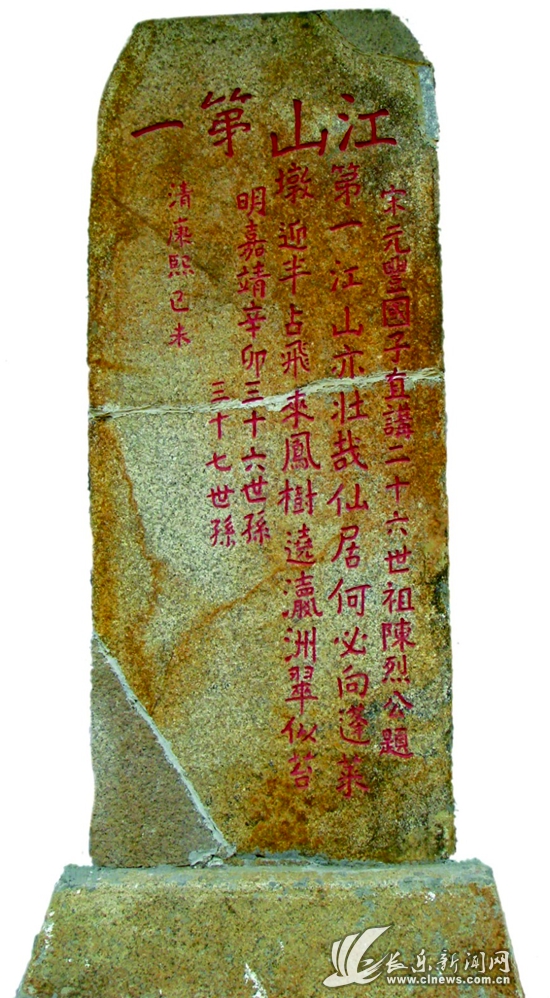 江山第一
宋元豐國子直講二十六世祖陳烈公題
第一江山亦壯哉仙居何必向蓬萊
墩迎半占飛來鳳樹遶瀛洲翠似苔
明嘉靖辛卯三十六世孫
三十七世孫
清康熙己未
长乐新闻网
www.clnews.com.cn